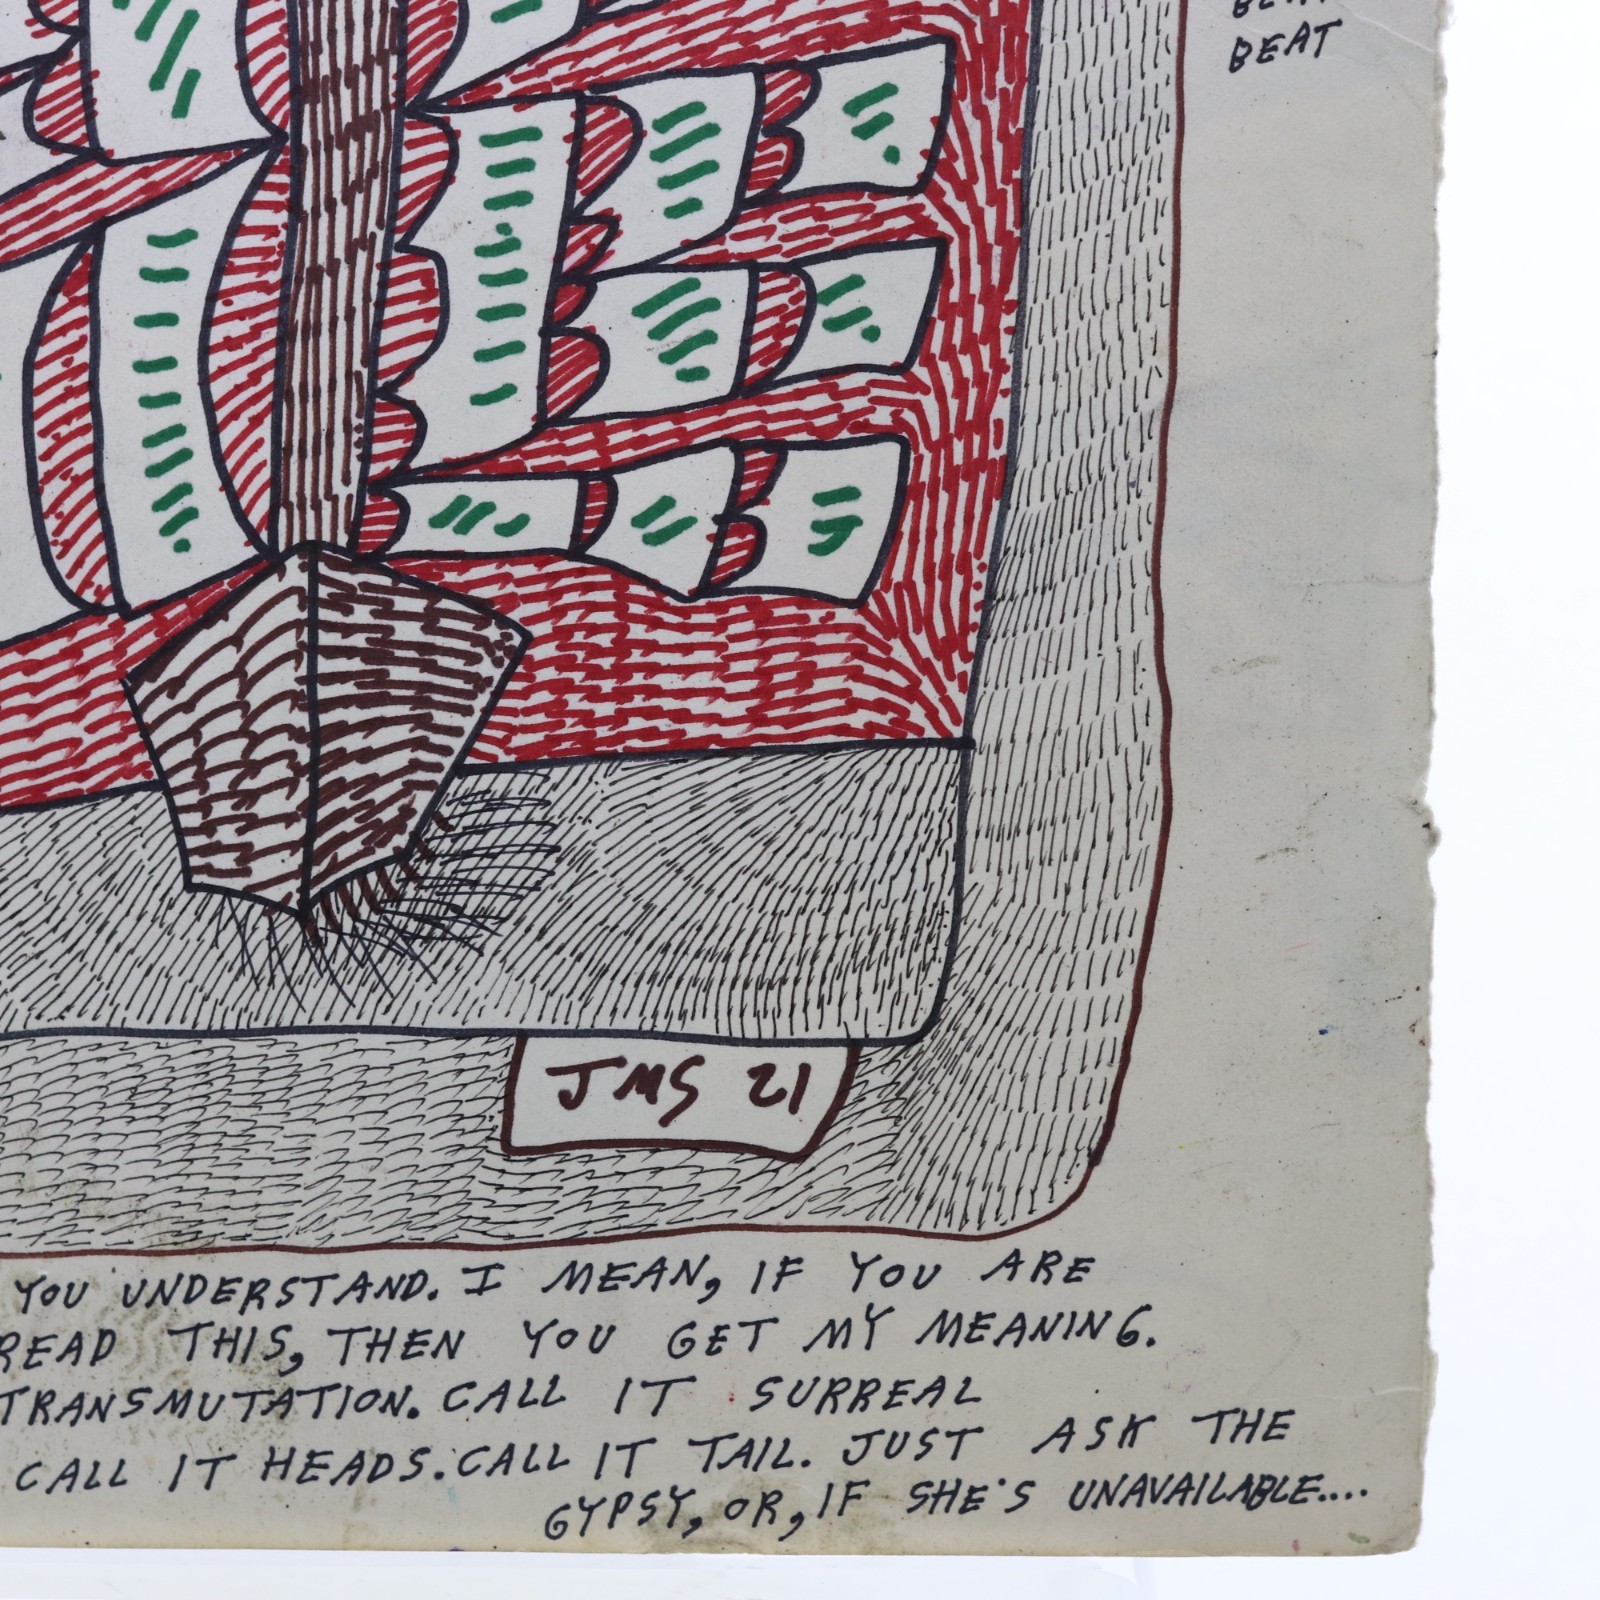 BEAT
BEAT
JMS 21
YOU UNDERSTAND. I MEAN, IF YOU ARE
READ THIS, THEN YOU GET MY MEANING.
TRANSMUTATION. CALL IT SURREAL
CALL IT HEADS. CALL IT TAIL. JUST ASK THE
GYPSY, OR, IF SHE'S UNAVAILABLE....